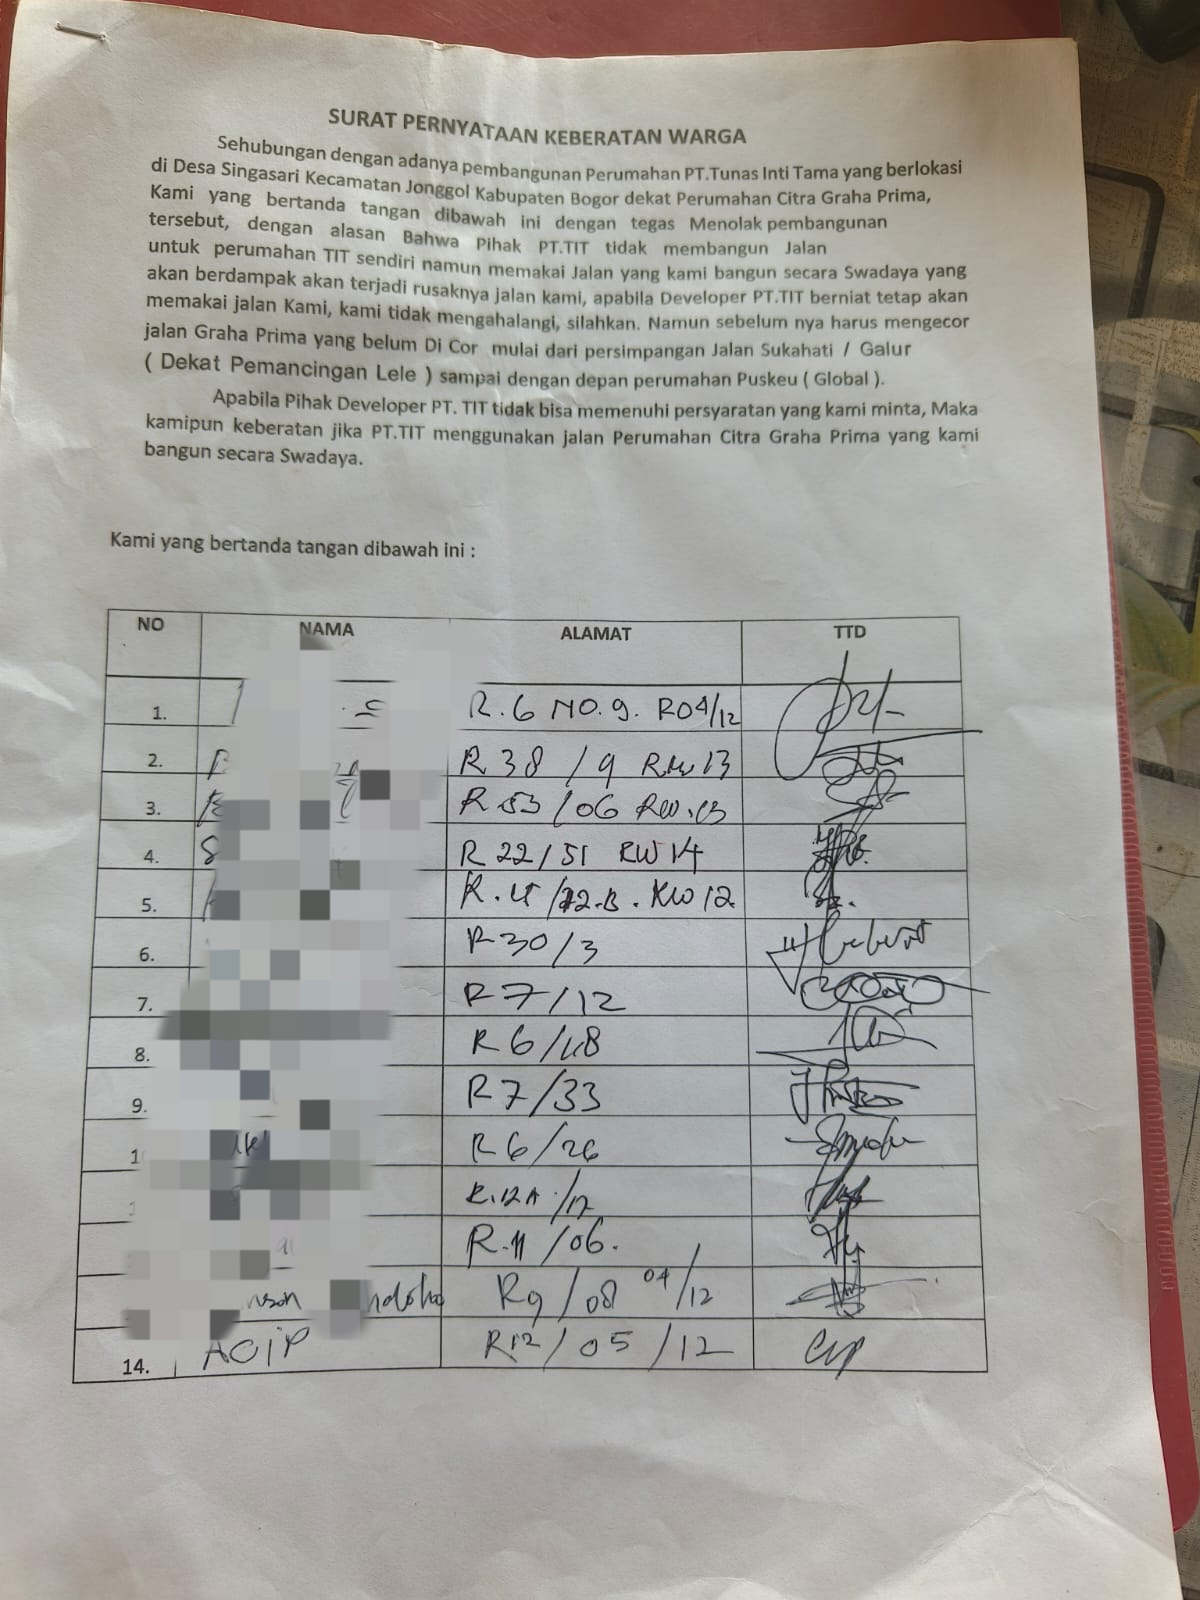 SURAT PERNYATAAN KEBERATAN WARGA
Sehubungan dengan adanya pembangunan Perumahan PT.Tunas Inti Tama yang berlokasi
di Desa Singasari Kecamatan Jonggol Kabupaten Bogor dekat Perumahan Citra Graha Prima,
Kami yang bertanda tangan dibawah ini dengan tegas Menolak pembangunan
tersebut, dengan alasan Bahwa Pihak PT.TIT tidak membangun Jalan
untuk perumahan TIT sendiri namun memakai Jalan yang kami bangun secara Swadaya yang
akan berdampak akan terjadi rusaknya jalan kami, apabila Developer PT.TIT berniat tetap akan
memakai jalan Kami, kami tidak mengahalangi, silahkan. Namun sebelum nya harus mengecor
jalan Graha Prima yang belum Di Cor mulai dari persimpangan Jalan Sukahati / Galur
( Dekat Pemancingan Lele ) sampai dengan depan perumahan Puskeu ( Global ).
Apabila Pihak Developer PT. TIT tidak bisa memenuhi persyaratan yang kami minta, Maka
kamipun keberatan jika PT.TIT menggunakan jalan Perumahan Citra Graha Prima yang kami
bangun secara Swadaya.
Kami yang bertanda tangan dibawah ini :
NO NAMA ALAMAT TTD
1. R.6 NO.9. R04/12
2. R 38 / 9 RW 13
3. R 53 / 06 RW.13
4. R 22/51 RW 14
5. RW 12.
6. R 30/3
7. R 7/12
8. R 6/48
9. R 7/33
R 6/26
R.12A /12
R.11 /06.
R9 / 08 04/12
14. ACIP R12 / 05 / 12